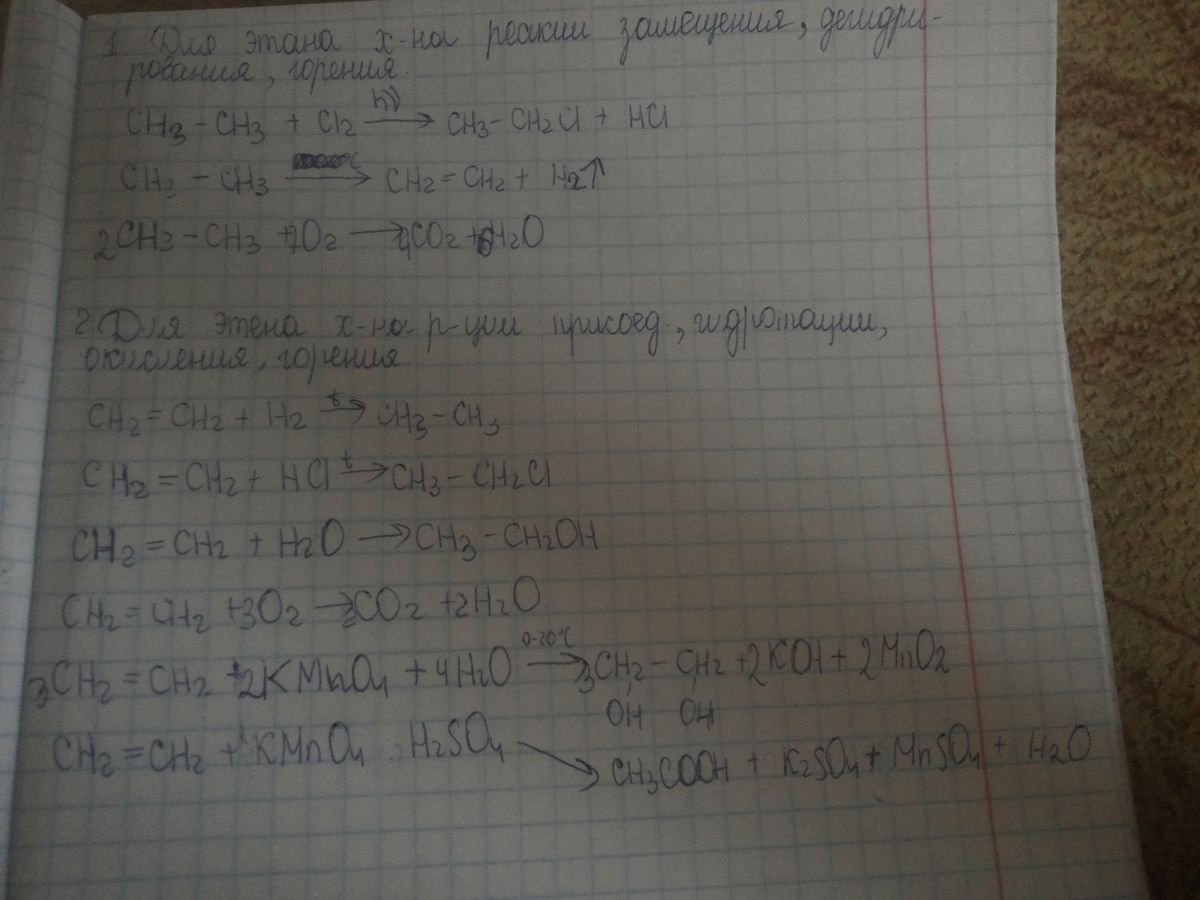 1. Для этана х-на реакии замещения, дегидри-
рования, горения.
CH3 - CH3 + Cl2 hν → CH3 - CH2Cl + HCl
CH3 - CH3 → CH2 = CH2 + H2↑
2CH3 - CH3 + 7O2 → 4CO2 + 6H2O
2. Для этена х-на р-ции присоед., гидротации,
окисления, горения.
CH2 = CH2 + H2 t→ CH3 - CH3
CH2 = CH2 + HCl t→ CH3 - CH2Cl
CH2 = CH2 + H2O → CH3 - CH2OH
CH2 = CH2 + 3O2 → 2CO2 + 2H2O
3CH2 = CH2 + 2KMnO4 + 4H2O 0-20°C → 3CH2 - CH2 + 2KOH + 2MnO2
OH OH
CH2 = CH2 + KMnO4 H2SO4 → CH3COOH + K2SO4 + MnSO4 + H2O